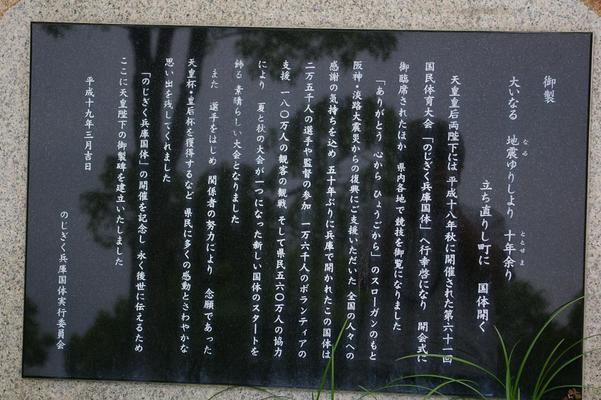 御製
大いなる 地震ゆりしより 十年余り
なる
ととせま
立ち直りし町に 国体開く
天皇皇后両陛下には 平成十八年秋に開催された第六十一回
国民体育大会「のじぎく兵庫国体」へ行幸啓になり 開会式に
御臨席されたほか 県内各地で競技を御覧になりました
「ありがとう 心から ひょうごから」のスローガンのもと
阪神・淡路大震災からの復興にご支援いただいた 全国の人々への
感謝の気持ちを込め 五十年ぶりに兵庫で開かれたこの国体は
二万五千人の選手や監督の参加 一万六千人のボランティアの
支援 一八〇万人の観客の観戦 そして県民五六〇万人の協力
により 夏と秋の大会が一つになった新しい国体のスタートを
飾る 素晴らしい大会となりました
また 選手をはじめ 関係者の努力により 念願であった
天皇杯・皇后杯を獲得するなど 県民に多くの感動とさわやかな
思い出を残してくれました
「のじぎく兵庫国体」の開催を記念し 永く後世に伝えるため
ここに天皇陛下の御製碑を建立いたしました
平成十九年三月吉日
のじぎく兵庫国体実行委員会